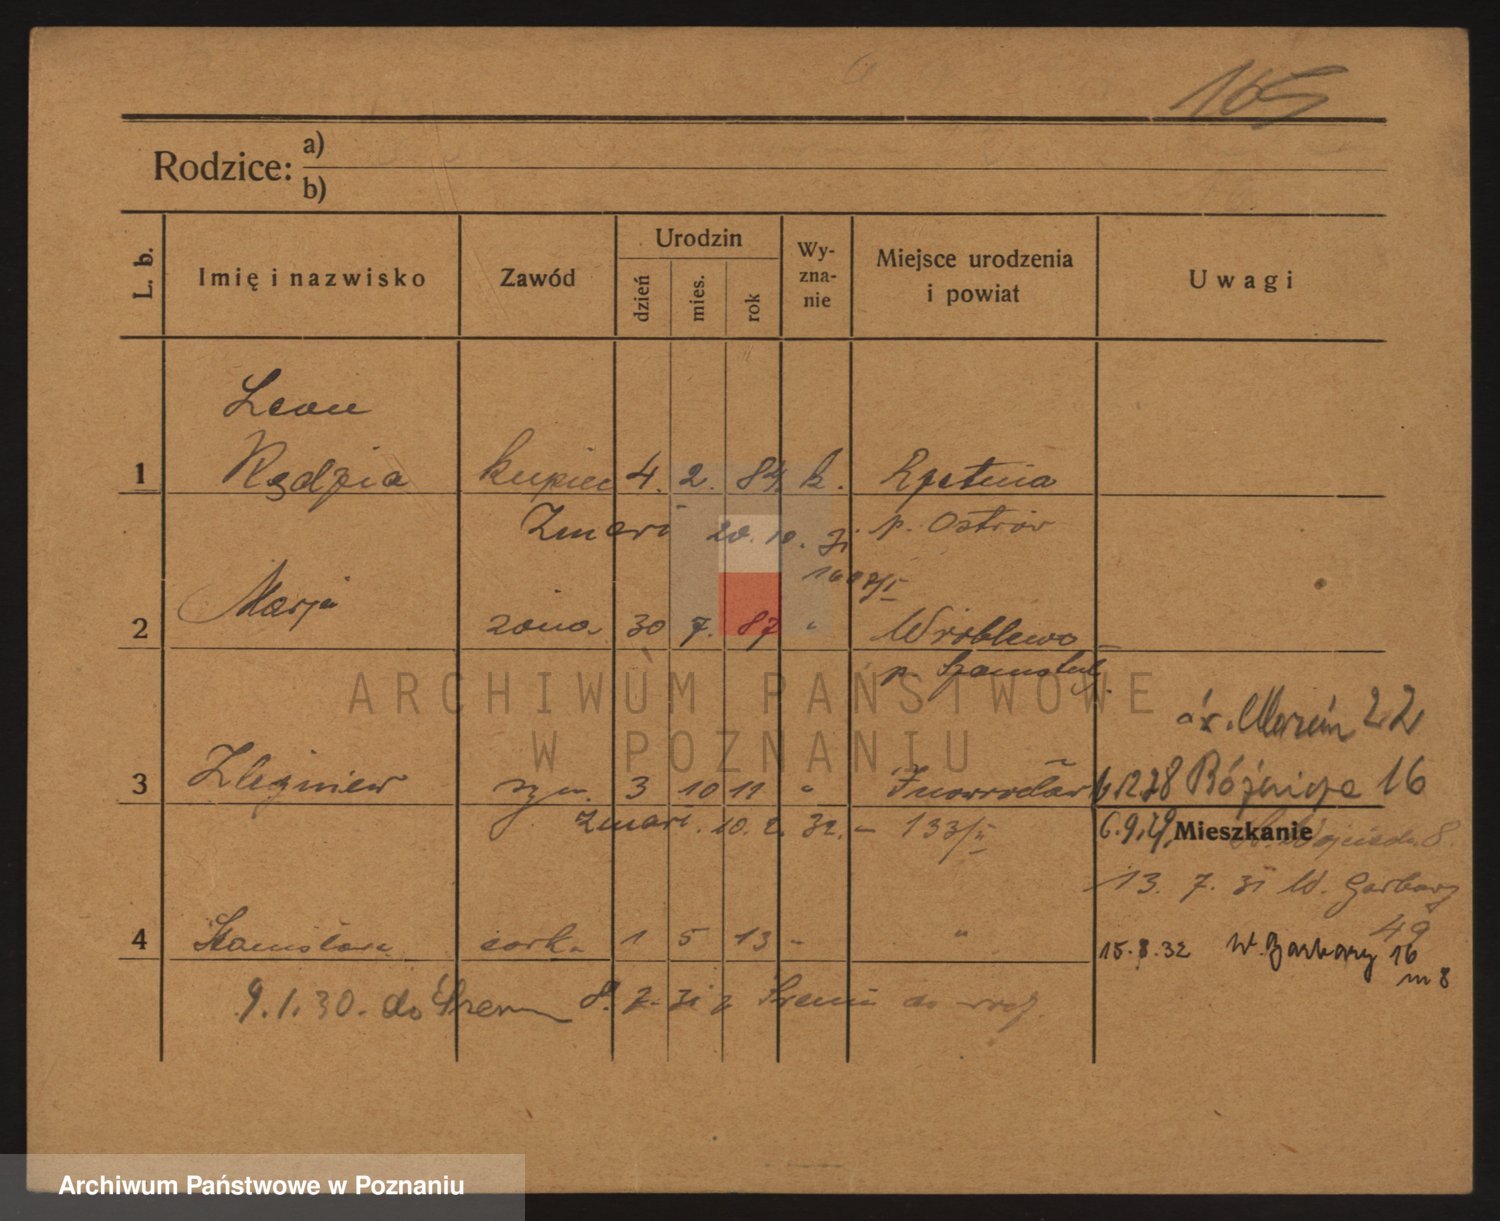 165
Rodzice: a)
b)
L. b. Imię i nazwisko Zawód Urodzin dzień mies. rok Wy-zna-nie Miejsce urodzenia i powiat Uwagi
Leon
1 kupiec 4. 2. 84. k.
Zmarł 20. 10. 31 p. Ostrów
Marja
2 żona 30 7. 87 " Wróblewo
p. Szamotuły
św. Marcin 22
3 Zbigniew syn. 3 10 11 " Inowrocław Różnicza 16
zmarł. 10. 2. 32. - 133/II 6.9.29. Mieszkanie 8.
13. 7. 31 W. Garbary
49
4 Stanisława córka 1 5 13 " " 15.8.32 W. Garbary 16
m 8
9.1.30. do Śrem 8. 2. 31 z Śremu do
ARCHIWUM PAŃSTWOWE
W POZNANIU
Archiwum Państwowe w Poznaniu